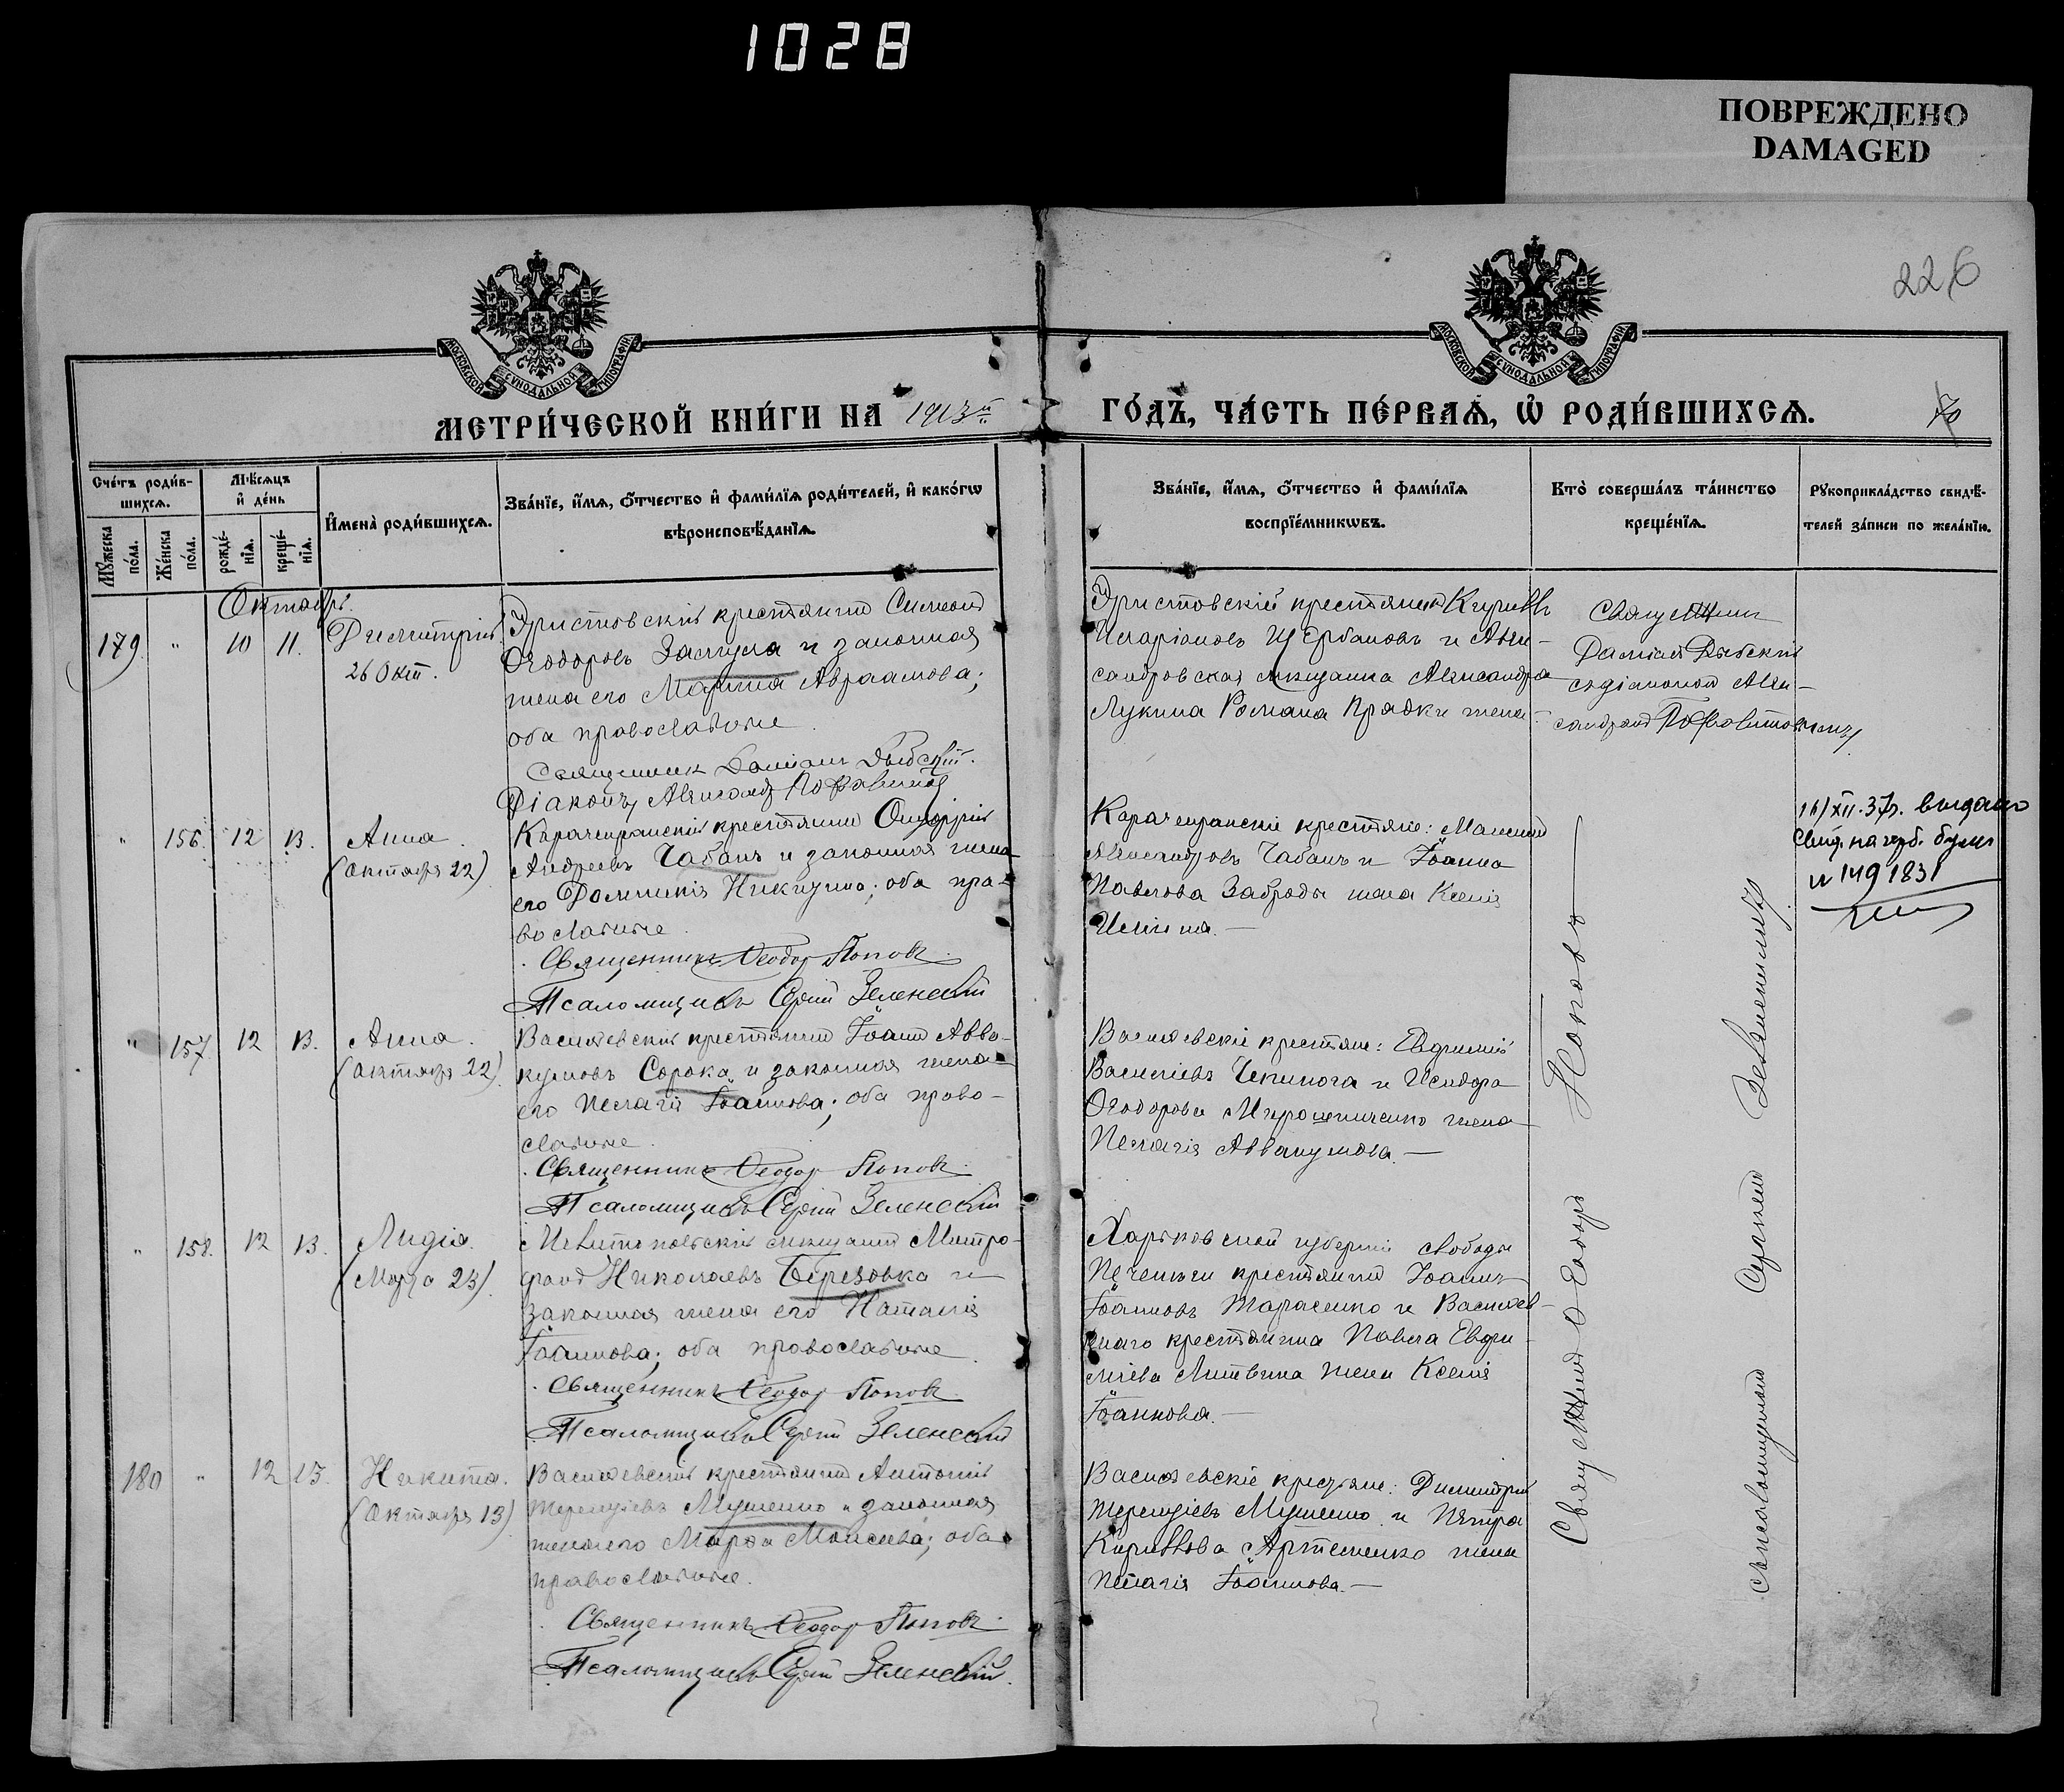 1028
ПОВРЕЖДЕНО
DAMAGED
226
МОСКОВСКОЙ СѴНОДАЛЬНОЙ ТИПОГРАФІИ
МОСКОВСКОЙ СѴНОДАЛЬНОЙ ТИПОГРАФІИ
МЕТРИ́ЧЕСКОЙ КНИ́ГИ НА 1913й
ГО́ДЪ, ЧА́СТЬ ПЕ́РВАѦ, Ѡ҆ РОДИ́ВШИХСѦ.
70
Сче́тъ роди́вшихсѧ.
Мꙋ́жеска по́ла.
Же́нска по́ла.
Мѣ́сѧцъ и҆ де́нь
рожде́нїѧ.
креще́нїѧ.
И҆мена̀ роди́вшихсѧ.
Зва́нїе, и҆́мѧ, ѻ҆́тчество и҆ фами́лїѧ роди́телей, и҆ како́гѡ
вѣроисповѣ́данїѧ.
Зва́нїе, и҆́мѧ, ѻ҆́тчество и҆ фами́лїѧ
воспрїе́мникѡвъ.
Кто̀ соверша́лъ та́инство
креще́нїѧ.
Рꙋкоприкла́дство свидѣ́-
телей за́писи по жела́нїю.
Октябрь.
179. " 10 11. Димитрій
26 Окт.
Эристовскій крестьянинъ Симеонъ
Ѳеодоровъ Зашула и законная
жена его Марина Авраамова;
оба православные
Священник Даміанъ Дыбскій.
Діаконъ Александръ
Эристовскій крестьянинъ Кириллъ
Иларіоновъ Щербаковъ и Алек-
сандровская мѣщанка Александра
Лукина Романа Прядки жена
Священникъ
Даміанъ Дыбскій
съ діакономъ Алек-
сандромъ
" 156. 12 13. Анна
(октября 22)
Карачекракскій крестьянинъ Онуфрій
Андреевъ Чабанъ и законная жена
его Домникія Никизина; оба пра-
вославные.
Священникъ Ѳеодоръ Поповъ
Псаломщикъ Сергій Зеленскій
Карачекракскіе крестьяне: Максимъ
Александровъ Чабанъ и Іоанна
Павлова Заброды жена Ксенія
Ильина. —
16/XII-37г. выдано
свид. на герб. бум.
№ 1491831
" 157 12 13. Анна.
(октября 22)
Васильевскій крестьянинъ Іоаннъ Авва-
кумовъ Сорока и законная жена
его Пелагія Іоаннова; оба право-
славные.
Священникъ Ѳеодоръ Поповъ
Псаломщикъ Сергій Зеленскій
Васильевскіе крестьяне: Евфимій
Василіевъ Чепинога и Исидора
Ѳеодорова Мирошниченко жена
Пелагія Аввакумова. —
" 158. 12 13. Лидія.
(Марта 23)
Мелитопольскій мѣщанинъ Митро-
фанъ Николаевъ Березовка и
законная жена его Наталія
Іоаннова; оба православные.
Священникъ Ѳеодоръ Поповъ
Псаломщикъ Сергій Зеленскій
Харьковской губерніи слободы
Печенѣги крестьянинъ Іоаннъ
Іоанновъ Тарасенко и Васильев-
скаго крестьянина Павла Евфи-
міева Литвина жена Ксенія
Іоаннова. —
180 " 12 13. Никита.
(октября 13)
Васильевскій крестьянинъ Антоній
Терентіевъ Мушенко и законная
жена его Марѳа Моисеева; оба
православные.
Священникъ Ѳеодоръ Поповъ
Псаломщикъ Сергій Зеленскій
Васильевскіе крестьяне: Димитрій
Терентіевъ Мушенко и Петра
Кириллова Артеменко жена
Пелагія Іоаннова. —
Священникъ Ѳеодоръ Поповъ
съ псаломщикомъ Сергіемъ Зеленскимъ